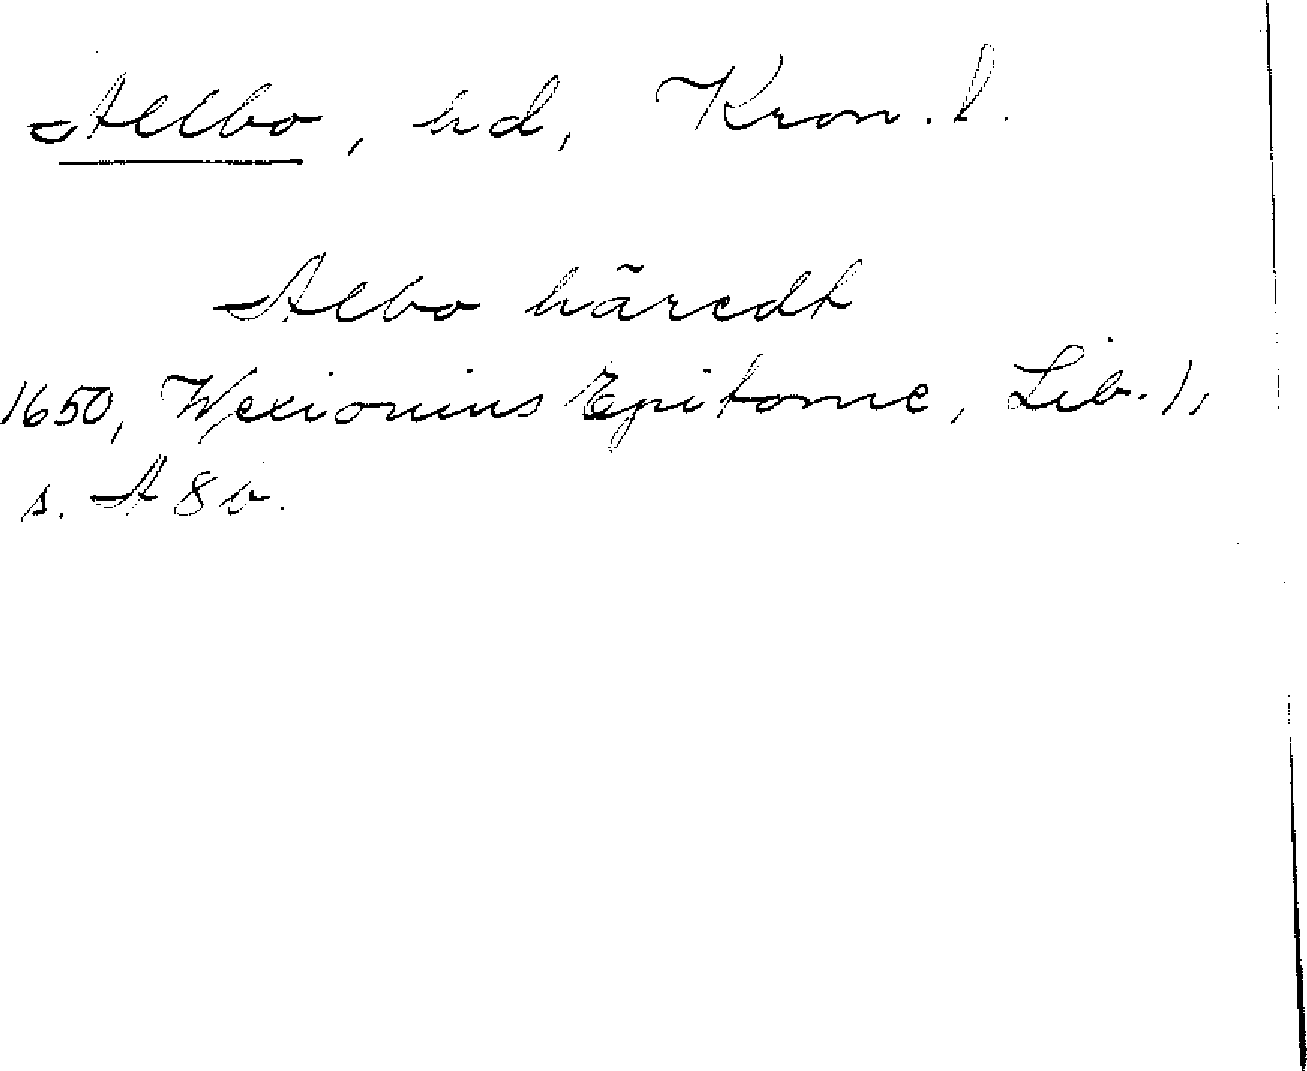 Allbo, hd, Kron. l.
Albo häredt
1650, Wexionius Epitome, Lib. 1,
s. A 8 v.